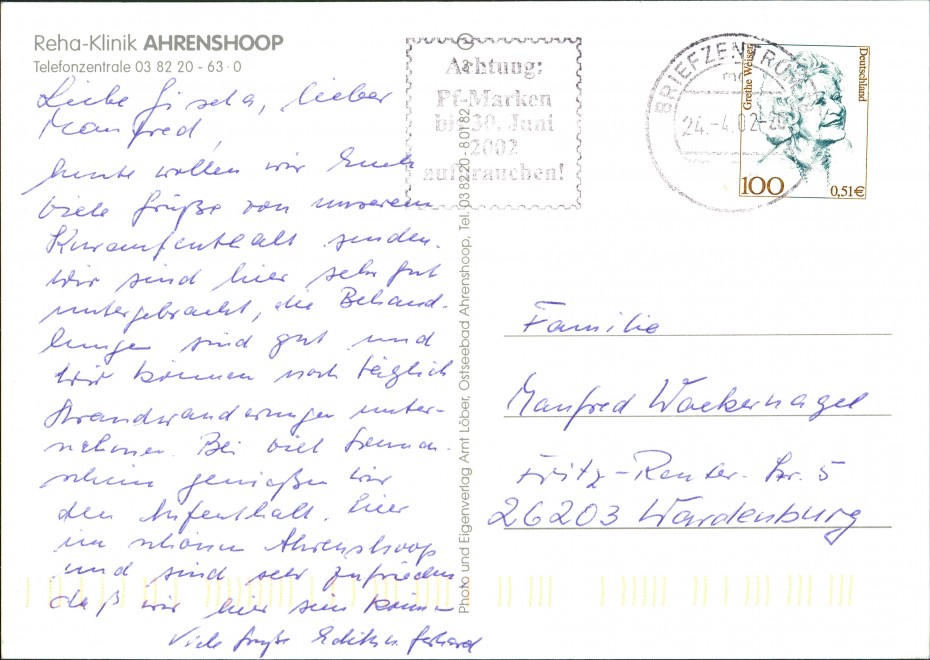 Reha-Klinik AHRENSHOOP
Telefonzentrale 03 82 20 - 63·0
Liebe Gisela, lieber
Manfred,
heute wollen wir Euch
viele Grüße von unserem
Kuraufenthalt senden.
Wir sind hier sehr gut
untergebracht, die Behand-
lungen sind gut und
wir können noch täglich
Strandwanderungen unter-
nehmen. Bei viel Sonnen-
schein genießen wir
den Aufenthalt hier
im schönen Ahrenshoop
und sind sehr zufrieden
daß wir hier sein können
Viele Grüße Edith u. Gerhard
Photo und Eigenverlag Arnt Löber, Ostseebad Ahrenshoop, Tel. 03 82 20 - 801 82
Achtung:
Pf-Marken
bis 30. Juni
2002
aufbrauchen!
BRIEFZENTRUM
24.-4.02
Grethe Weiser
Deutschland
100
0,51€
Familie
Manfred Wackernagel
Fritz-Reuter-Str. 5
26203 Wardenburg